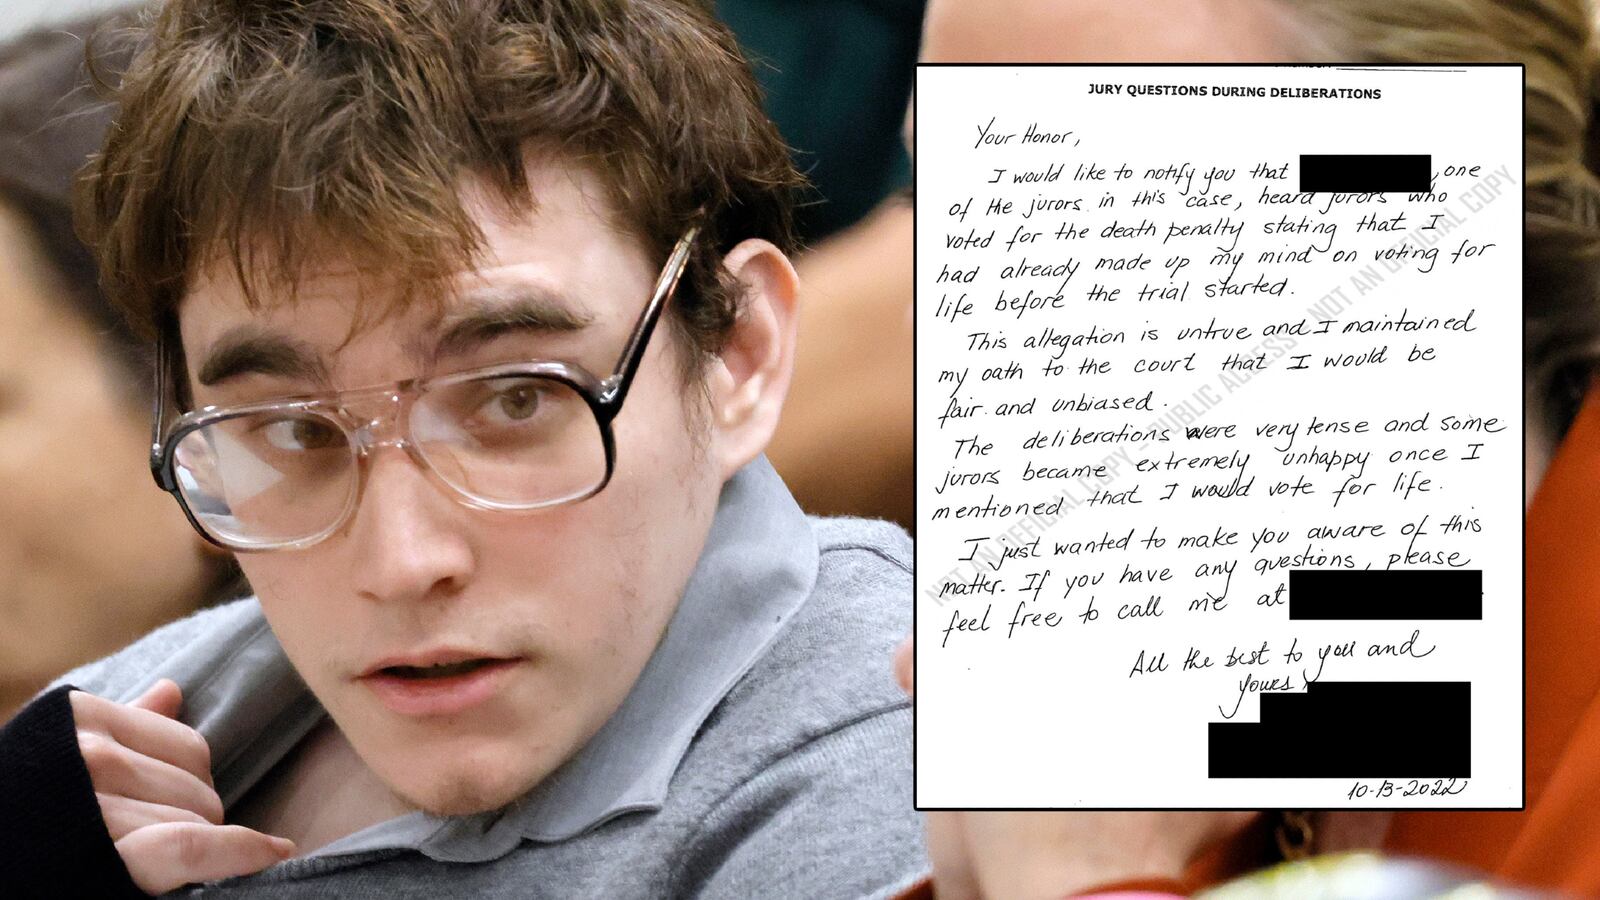 JURY QUESTIONS DURING DELIBERATIONS
Your Honor,
I would like to notify you that , one
of the jurors in this case, heard jurors who
voted for the death penalty stating that I
had already made up my mind on voting for
life before the trial started.
This allegation is untrue and I maintained
my oath to the court that I would be
fair and unbiased.
The deliberations were very tense and some
jurors became extremely unhappy once I
mentioned that I would vote for life.
I just wanted to make you aware of this
matter. If you have any questions, please
feel free to call me at
All the best to you and
yours,
10-13-2022
NOT AN OFFICIAL COPY - PUBLIC ACCESS - NOT AN OFFICIAL COPY